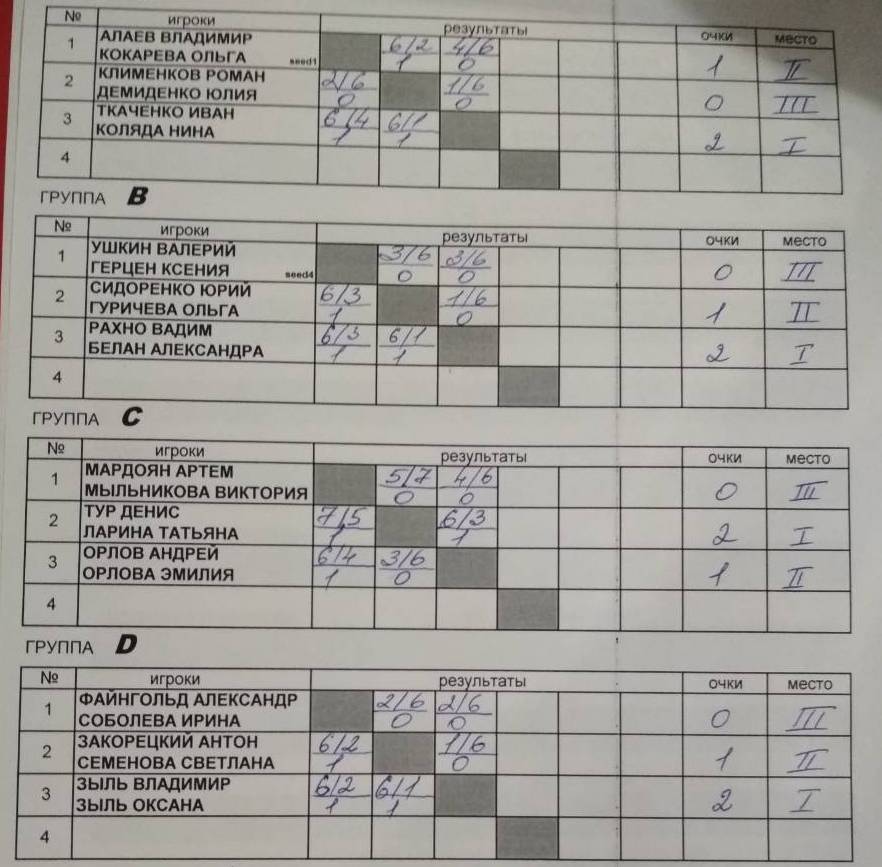 № игроки результаты очки место
1 АЛАЕВ ВЛАДИМИР 6/2 4/6
КОКАРЕВА ОЛЬГА seed1 1 0 1 II
2 КЛИМЕНКОВ РОМАН 2/6 1/6
ДЕМИДЕНКО ЮЛИЯ 0 0 0 III
3 ТКАЧЕНКО ИВАН 6/4 6/1
КОЛЯДА НИНА 1 1 2 I
4
ГРУППА B
№ игроки результаты очки место
1 УШКИН ВАЛЕРИЙ 3/6 3/6
ГЕРЦЕН КСЕНИЯ seed4 0 0 0 III
2 СИДОРЕНКО ЮРИЙ 6/3 1/6
ГУРИЧЕВА ОЛЬГА 1 0 1 II
3 РАХНО ВАДИМ 6/3 6/1
БЕЛАН АЛЕКСАНДРА 1 1 2 I
4
ГРУППА C
№ игроки результаты очки место
1 МАРДОЯН АРТЕМ 5/7 4/6
МЫЛЬНИКОВА ВИКТОРИЯ 0 0 0 III
2 ТУР ДЕНИС 7/5 6/3
ЛАРИНА ТАТЬЯНА 1 1 2 I
3 ОРЛОВ АНДРЕЙ 6/4 3/6
ОРЛОВА ЭМИЛИЯ 1 0 1 II
4
ГРУППА D
№ игроки результаты очки место
1 ФАЙНГОЛЬД АЛЕКСАНДР 2/6 2/6
СОБОЛЕВА ИРИНА 0 0 0 III
2 ЗАКОРЕЦКИЙ АНТОН 6/2 1/6
СЕМЕНОВА СВЕТЛАНА 1 0 1 II
3 ЗЫЛЬ ВЛАДИМИР 6/2 6/1
ЗЫЛЬ ОКСАНА 1 1 2 I
4